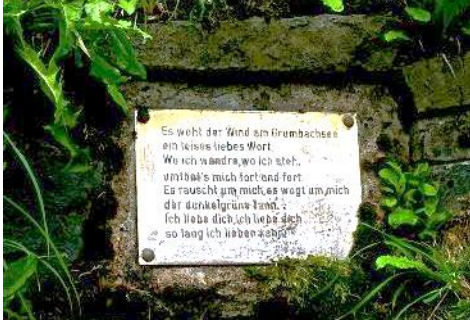 Es weht der Wind am Grumbachsee
ein leises liebes Wort.
Wo ich wandre, wo ich steh,
umtönt's mich fort und fort.
Es rauscht um mich, es wogt um mich
der dunkelgrüne Tann.
Ich liebe dich, ich liebe dich
so lang ich lieben kann.